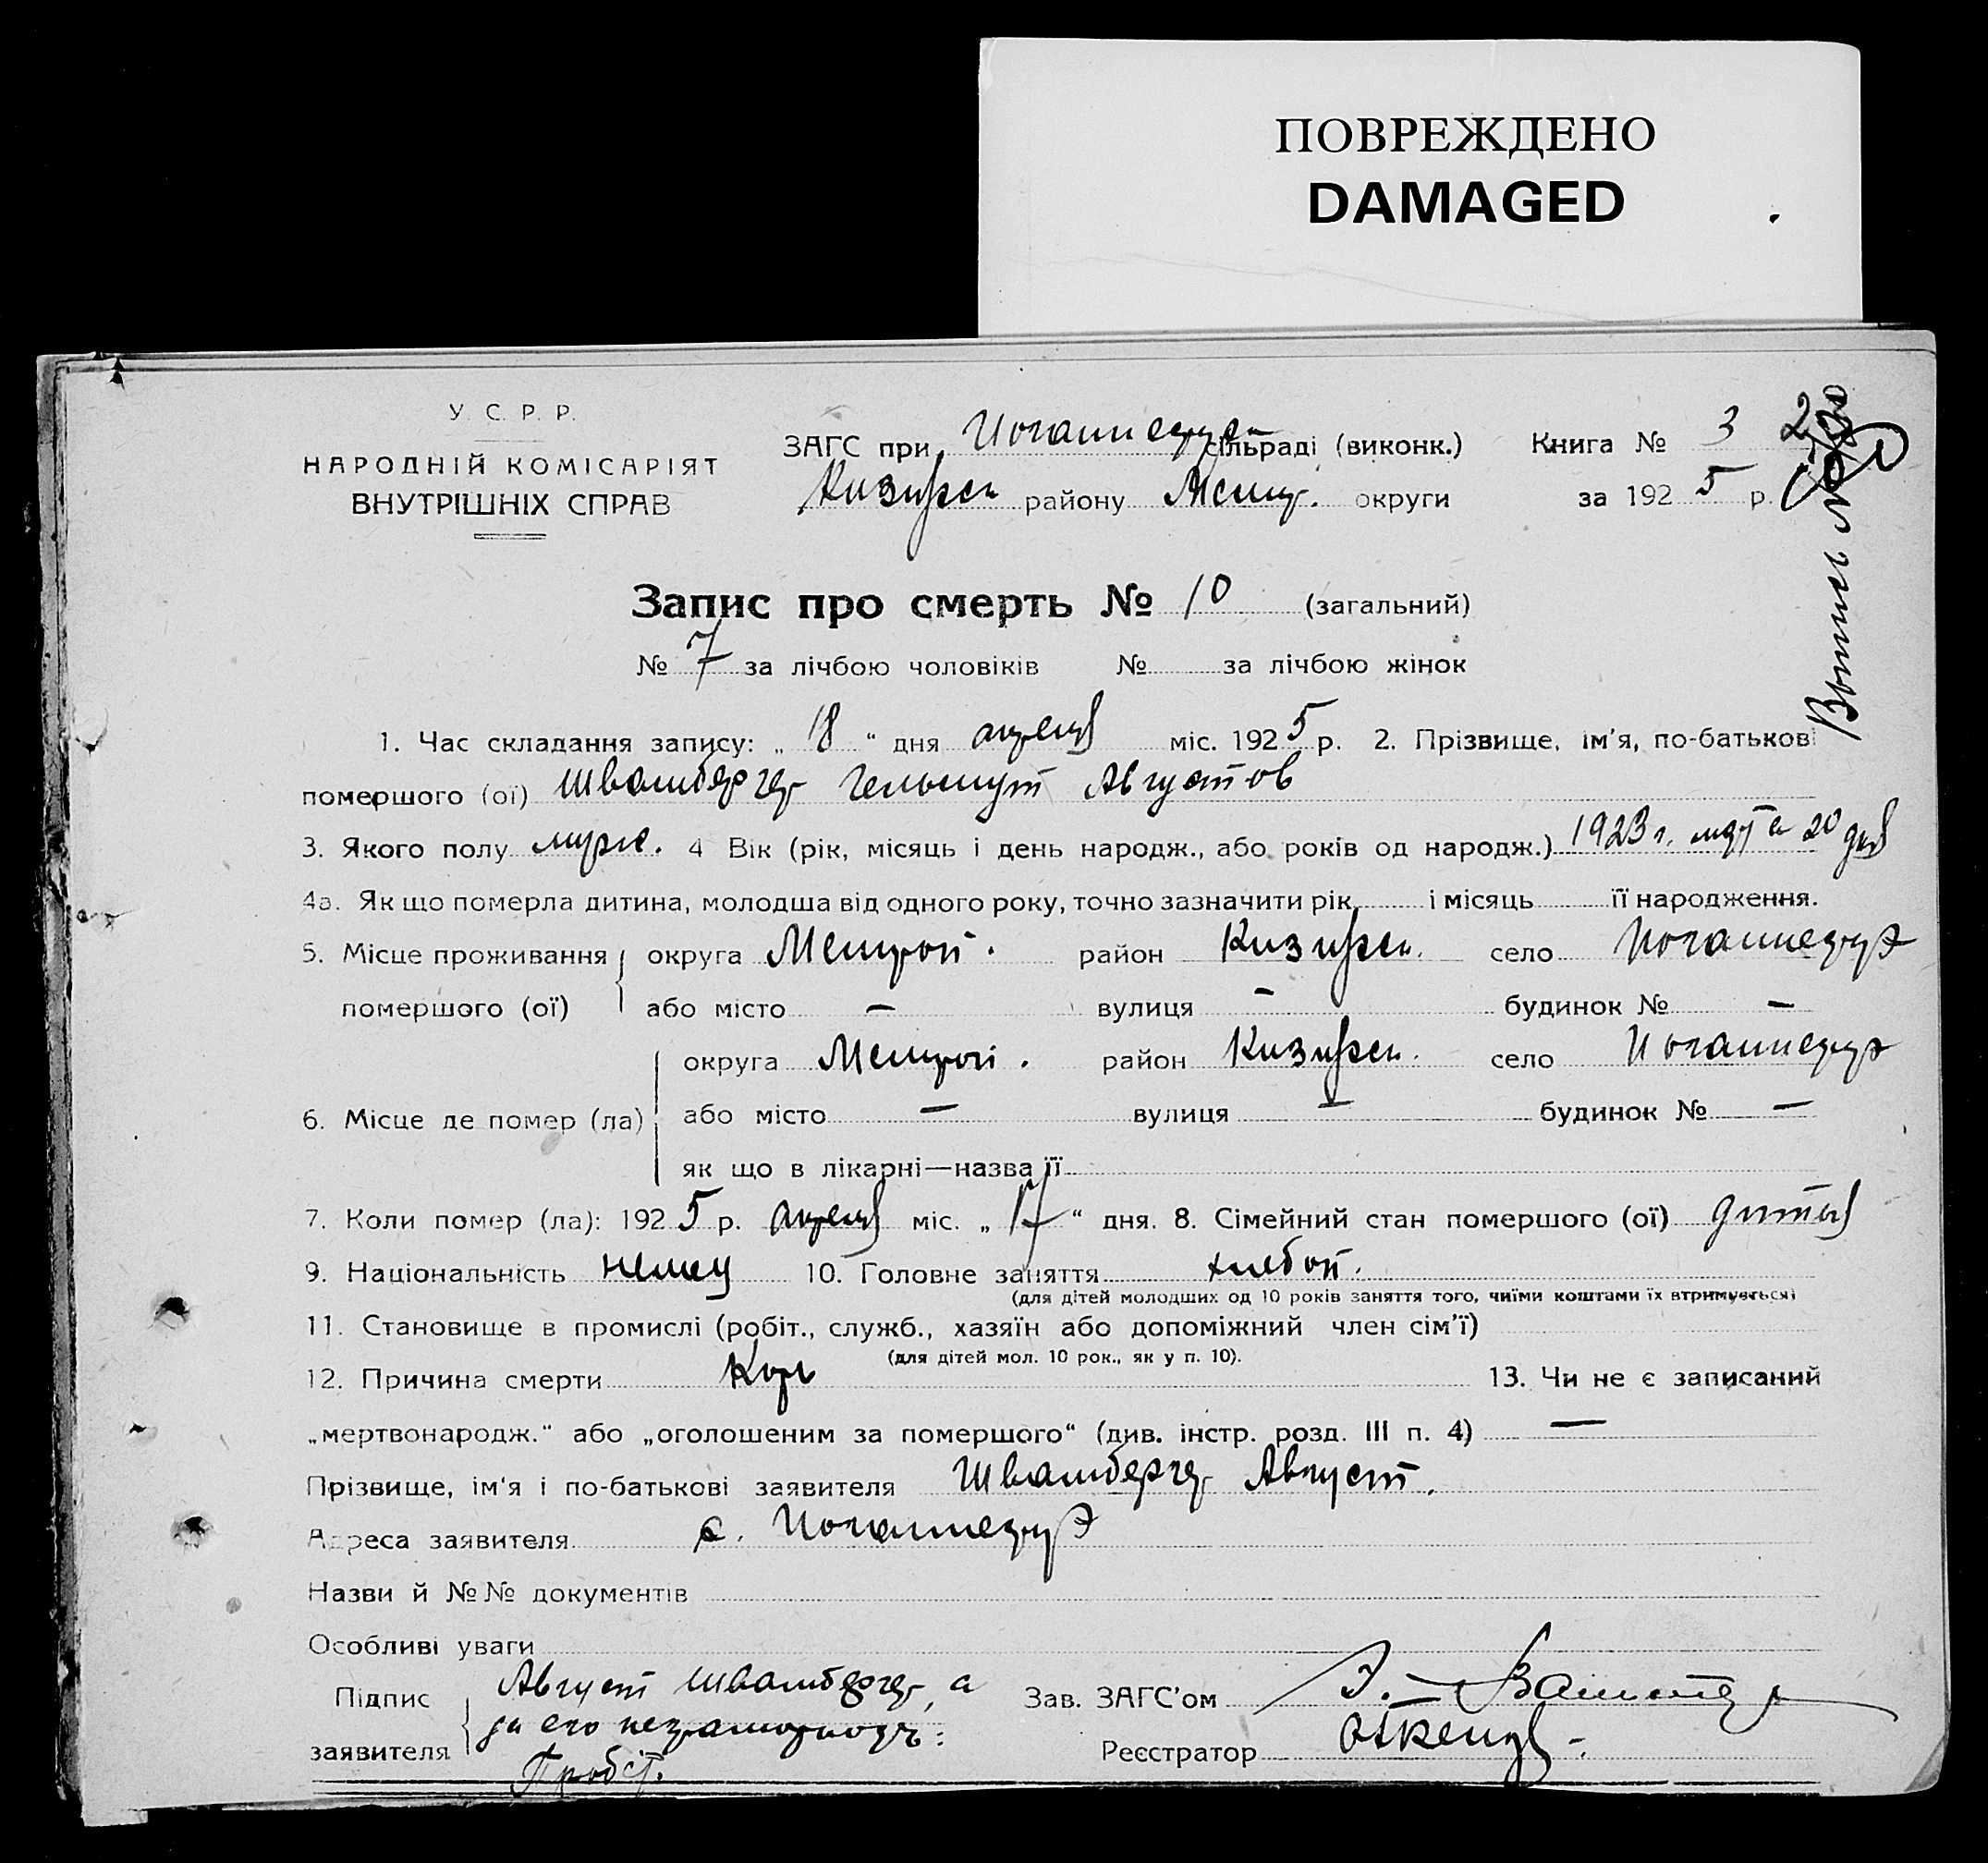 ПОВРЕЖДЕНО
DAMAGED
У. С. Р. Р.
НАРОДНІЙ КОМІСАРІЯТ
ВНУТРІШНІХ СПРАВ
ЗАГС при сільраді (виконк.) Книга № 3 2
району округи за 1925 р.
Запис про смерть № 10 (загальний)
№ 7 за лічбою чоловіків № за лічбою жінок
1. Час складання запису: „ 18 “ дня апреля міс. 1925 р. 2. Прізвище, ім'я, по-батькові
помершого (ої) Швамбергер Гельмут Августов
3. Якого полу муж. 4 Вік (рік, місяць і день народж., або років од народж.) 1923 г. марта 20 дня
4а. Як що померла дитина, молодша від одного року, точно зазначити рік і місяць її народження.
5. Місце проживання округа Мелитоп. район село Иоганнесру
помершого (ої) або місто — вулиця — будинок № —
округа Мелитоп. район село Иоганнесру
6. Місце де помер (ла) або місто — вулиця — будинок № —
як що в лікарні—назва її
7. Коли помер (ла): 1925 р. апреля міс. „ 17 “ дня. 8. Сімейний стан помершого (ої) дитя
9. Національність немец 10. Головне заняття хлебоп.
(для дітей молодших од 10 років заняття того, чиїми коштами їх втримується)
11. Становище в промислі (робіт., служб., хазяїн або допоміжний член сім'ї)
(для дітей мол. 10 рок., як у п. 10).
12. Причина смерти Корь 13. Чи не є записаний
„мертвонародж.“ або „оголошеним за помершого“ (див. інстр. розд. III п. 4) —
Прізвище, ім'я і по-батькові заявителя Швамбергер Август.
Адреса заявителя с. Иоганнесру
Назви й №№ документів
Особливі уваги
Підпис Август Швамбергер, а Зав. ЗАГС'ом
заявителя за его неграмотность: Реєстратор